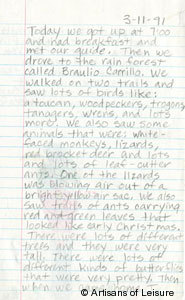 3-11-91
Today we got up at 7:00
and had breakfast and
met our guide. Then we
drove to the rain forest
called Braulio Carrillo. We
walked on two trails and
saw lots of birds like:
a toucan, woodpeckers, trogons,
tanagers, wrens, and lots
more! We also saw some
animals that were: white-
faced monkeys, lizards,
red brocket deer and lots
and lots of leaf cutter
ants. One of the lizards
was blowing air out of a
bright yellow air sac. We also
saw trails of ants carrying
red and green leaves that
looked like early Christmas.
There were lots of different
trees and they were very
tall. There were lots of
different kinds of butterflies
that were very pretty. Then
when we home
© Artisans of Leisure